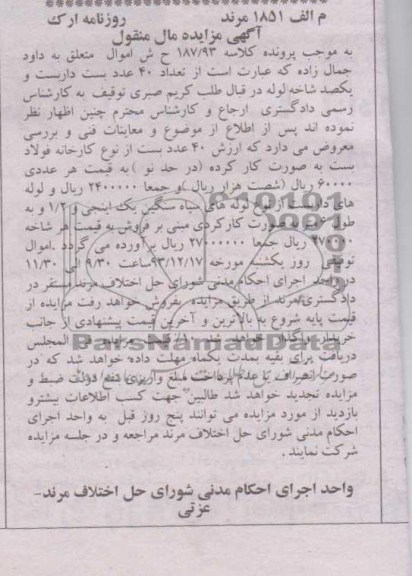 م الف ۱۸۵۱ مرند روزنامه ارک
آگهی مزایده مال منقول
به موجب پرونده کلاسه ۱۸۷/۹۳ ح ش اموال متعلق به داود
جمال زاده که عبارت است از تعداد ۴۰ عدد بست داربست و
یکصد شاخه لوله در قبال طلب کریم صبری توقیف به کارشناس
رسمی دادگستری ارجاع و کارشناس محترم چنین اظهار نظر
نموده اند پس از اطلاع از موضوع و معاینات فنی و بررسی
معروض می دارد که ارزش ۴۰ عدد بست از نوع کارخانه فولاد
بست به صورت کار کرده (در حد نو ) به قیمت هر عددی
۶۰۰۰۰ ریال (شصت هزار ریال )و جمعا ۲۴۰۰۰۰۰ ریال و لوله
های از نوع لوله های سیاه سنگین یک اینچی و ۱/۲ و به
طول ۶ متر به صورت کارکردی مبنی بر فروش به قیمت هر شاخه
۲۷۰۰۰۰ ریال جمعا ۲۷۰۰۰۰۰۰ ریال برآورده می گردد .اموال
توقیفی روز یکشنبه مورخه ۹۳/۱۲/۱۷ساعت ۹/۳۰ الی ۱۱/۳۰
در واحد اجرای احکام مدنی شورای حل اختلاف مرند مستقر در
دادگستری مرند از طریق مزایده بفروش خواهد رفت مزایده از
قیمت پایه شروع به بالاترین و آخرین قیمت پیشنهادی از جانب
خریدار واگذار خواهد شد ۱۰٪ قیمت مزایده فی المجلس
دریافت برای بقیه بمدت یکماه مهلت داده خواهد شد که در
صورت انصراف یا عدم پرداخت مبلغ واریزی بنفع دولت ضبط و
مزایده تجدید خواهد شد طالبین جهت کسب اطلاعات بیشترو
بازدید از مورد مزایده می توانند پنج روز قبل به واحد اجرای
احکام مدنی شورای حل اختلاف مرند مراجعه و در جلسه مزایده
شرکت نمایند .
واحد اجرای احکام مدنی شورای حل اختلاف مرند-
عزتی
ParsNamadData